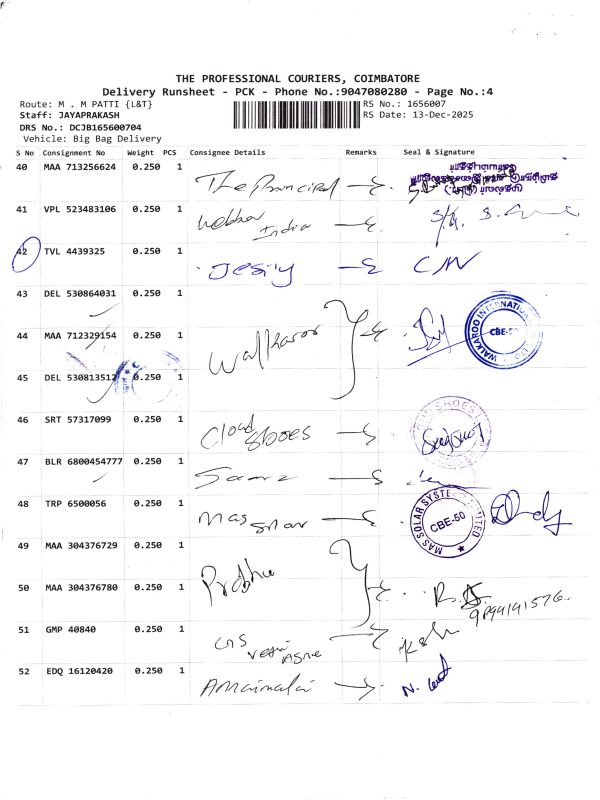 THE PROFESSIONAL COURIERS, COIMBATORE
Delivery Runsheet - PCK - Phone No.:9047080280 - Page No.:4
Route: M . M PATTI {L&T}
RS No.: 1656007
Staff: JAYAPRAKASH
RS Date: 13-Dec-2025
DRS No.: DCJB165600704
Vehicle: Big Bag Delivery
S No Consignment No Weight PCS Consignee Details Remarks Seal & Signature
40 MAA 713256624 0.250 1 The Principal
41 VPL 523483106 0.250 1 India
42 TVL 4439325 0.250 1 Jesily
43 DEL 530864031 0.250 1
44 MAA 712329154 0.250 1 Walkaroo WALKAROO INTERNATIONAL CBE-50
45 DEL 530813512 0.250 1
46 SRT 57317099 0.250 1 Cloud Shoes SHOES
47 BLR 6800454777 0.250 1
48 TRP 6500056 0.250 1 Mas Solar MAS SOLAR SYSTEMS LIMITED CBE-50
49 MAA 304376729 0.250 1
50 MAA 304376780 0.250 1 Prabhu
51 GMP 40840 0.250 1
52 EDQ 16120420 0.250 1 Annaimalai